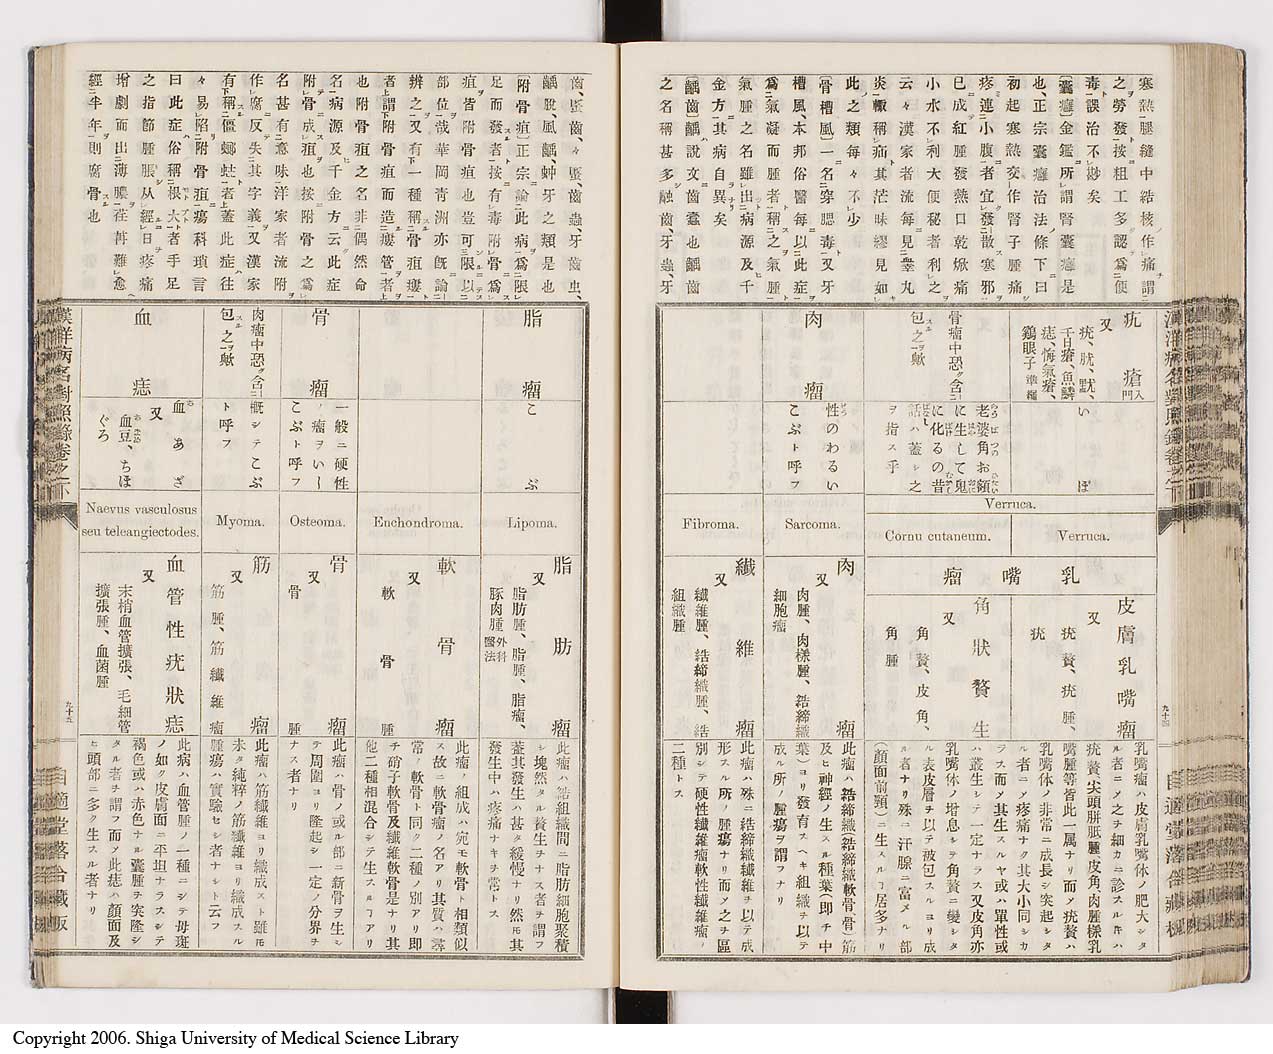 寒熱腿縫中結核作痛謂
之勞發按粗工多認爲便
毒誤治不尠矣
〔囊癰〕金鑑所謂腎囊癰是
也正宗囊癰治法條下曰
初起寒熱交作腎子腫痛
疼連小腹者宜發散寒邪
已成紅腫發熱口乾焮痛
小水不利大便秘者利之
云々漢家者流每見睾丸
炎輙稱痛其茫昧繆見如
此之類每々不少
〔骨槽風〕一名穿腮毒又牙
槽風、本邦俗醫每以此症
爲氣凝而腫者稱之氣腫
氣腫之名雖出病源及千
金方其病自異矣
〔齲齒〕齲說文齒蠧也齲齒
之名稱甚多齲齒、牙蟲、牙
疣瘡 入門
又
疣、肬、黙、
千日瘡、魚鱗
痣、悔氣瘡、
鷄眼子 準繩
いぼ
Verruca.
Verruca.
Cornu cutaneum.
乳嘴瘤
皮膚乳嘴瘤
又
疣贅、疣腫、
疣
乳嘴瘤ハ皮膚乳嘴体ノ肥大シタ
ル者ニノ之チ細カニ診スルキハ
疣贅尖頭胼胝腫皮角、肉腫樣乳
嘴腫等皆此一属ナリ而メ疣贅ハ
乳嘴体ノ非常ニ成長シ突起シタ
ル者ニノ疼痛ナク其大小同シカ
ラス而メ其生スルヤ或ハ單性或
ハ叢生シテ一定ナラス又皮角亦
乳嘴体ノ增息シテ角贅ニ變シタ
ル表皮層チ以テ被包スルヨリ成
ル者ナリ殊ニ汗腺ニ富メル部
(顏面前頸)ニ生スルヿ居多ナリ
骨瘤中恐ク含
包之歟
老婆角お額
に生して鬼
に化るの昔
話ハ蓋シ之
ヲ指ス乎
角狀贅生
又
角贅、皮角、
角腫
肉瘤
性のわるい
こぶト呼フ
Sarcoma.
肉瘤
又
肉腫、肉樣腫、結締織
細胞瘤
此瘤ハ結締織(結締織軟骨、骨)筋
及ヒ神經ノ生スル種葉(即チ中
葉)ヨリ發育スヘキ組織ヲ以テ
成ル所ノ腫瘍ヲ謂フナリ
Fibroma.
纎維瘤
又
纎維腫、結締織腫、結
組織腫
此瘤ハ殊ニ結締織纎維ヲ以テ成
形スル所ノ腫瘍ナリ而メ之チ區
別シテ硬性纎維瘤軟性纎維瘤ノ
二種トス
九十四
齒、䘌齒、々䘌、齒蟲、牙齒虫、
齲脫、風齲、蚛牙之類是也
〔附骨疽〕正宗論此病爲限
足而發者按有毒附骨爲
疽皆附骨疽也豈可限以
部位哉華岡靑洲亦旣論
辨之又有一種稱骨疽瘻
者謂附骨疽而造瘻管者
也附骨疽之名非偶然命
名病源及千金方云此症
附骨成疽也按附骨之爲
名甚有意味洋家者流附
作腐反失其字義又漢家
有稱僵螂蛀者蓋此症往
々易陷附骨疽瘍科瑣言
曰此症俗稱根太者手足
之指節腫脹从經日疼痛
增劇而出薄膿荏苒難愈
經半年則腐骨也
脂瘤
こぶ
Lipoma.
脂肪瘤
又
脂肪腫、脂腫、脂瘤、
豚肉腫 外科醫法
此瘤ハ結組織間ニ脂肪細胞聚積
シ塊然タル贅生チナス者チ謂フ
蓋其發生ハ甚タ緩慢ナリ然ㇳモ其
發生中ハ疼痛ナキチ常トス
Enchondroma.
軟骨瘤
又
軟骨腫
此瘤ノ組成ハ宛モ軟骨ト相類似
ス故ニ軟骨瘤ノ名アリ其質ハ尋
常ノ軟骨ト同ク二種ノ別アリ即
チ硝子軟骨及纎維軟骨是ナリ其
他二種相混合シテ生スルヿアリ
骨瘤
一般ニ硬性
ノ瘤ヲいし
こぶト呼フ
Osteoma.
骨瘤
又
骨腫
此瘤ハ骨ノ或ル部ニ新骨ヲ生シ
テ周圍ヨリ隆起シ一定ノ分界チ
ナス者ナリ
肉瘤中恐ク含
包之歟
概シテこぶ
ト呼フ
Myoma.
筋瘤
又
筋腫、筋纎維瘤
此瘤ハ筋纎維ヨリ織成スト雖ㇳモ
未タ純粹ノ筋纎維ヨリ織成スル
腫瘍ハ實驗セシ者ナシト云フ
血痣
血あざ
又
血豆、ちぼ
ぐろ
Naevus vasculosus
seu teleangiectodes.
血管性疣狀痣
又
末梢血管擴張、毛細管
擴張腫、血菌腫
此病ハ血管腫ノ一種ニシテ母斑
ノ如ク皮膚面ニ平坦ナラスシテ
褐色或ハ赤色ナル囊腫チ突隆シ
タル者チ謂フ而メ此痣ハ顏面及
ヒ頭部ニ多ク生スル者ナリ
九十五
漢洋病名對照錄卷之下
自適堂落合藏版
Copyright 2006. Shiga University of Medical Science Library